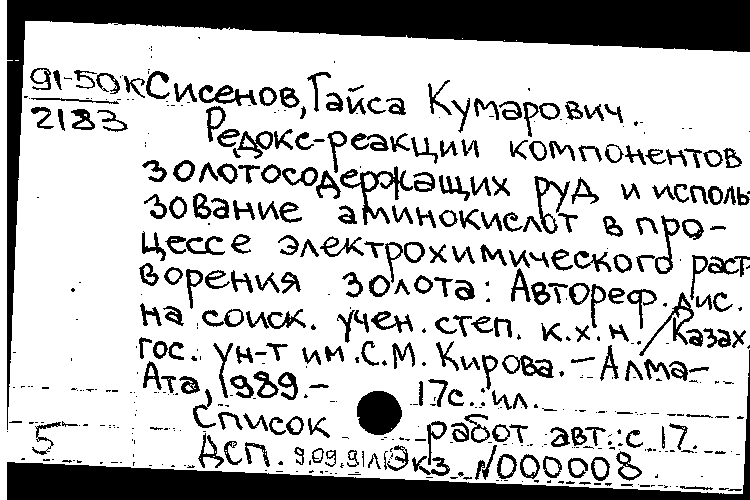 91-50к Сисенов, Гайса Кумарович.
2183 Редокс-реакции компонентов
золотосодержащих руд и исполь
зование аминокислот в про-
цессе электрохимического раст
ворения золота: Автореф. дис.
на соиск. учен. степ. к.х.н. / Казах.
гос. ун-т им. С.М. Кирова. - Алма-
Ата, 1989. - 17с.: ил.
Список работ авт.: с 17.
5 ДСП. 9.09.91 Экз. №000008